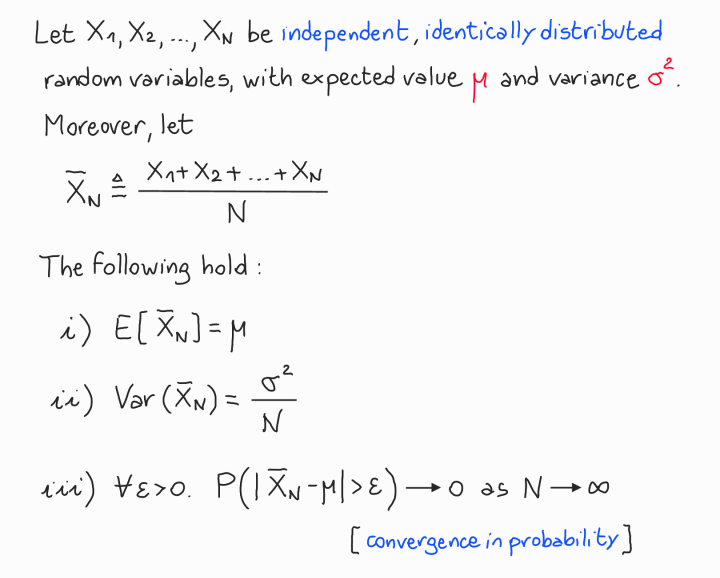 Let X₁, X₂, ..., X_N be independent, identically distributed
random variables, with expected value μ and variance σ².
Moreover, let
X̄_N ≜ (X₁ + X₂ + ... + X_N) / N
The following hold :
i) E[X̄_N] = μ
ii) Var(X̄_N) = σ² / N
iii) ∀ε>0. P(|X̄_N - μ| > ε) → 0 as N → ∞
[convergence in probability]